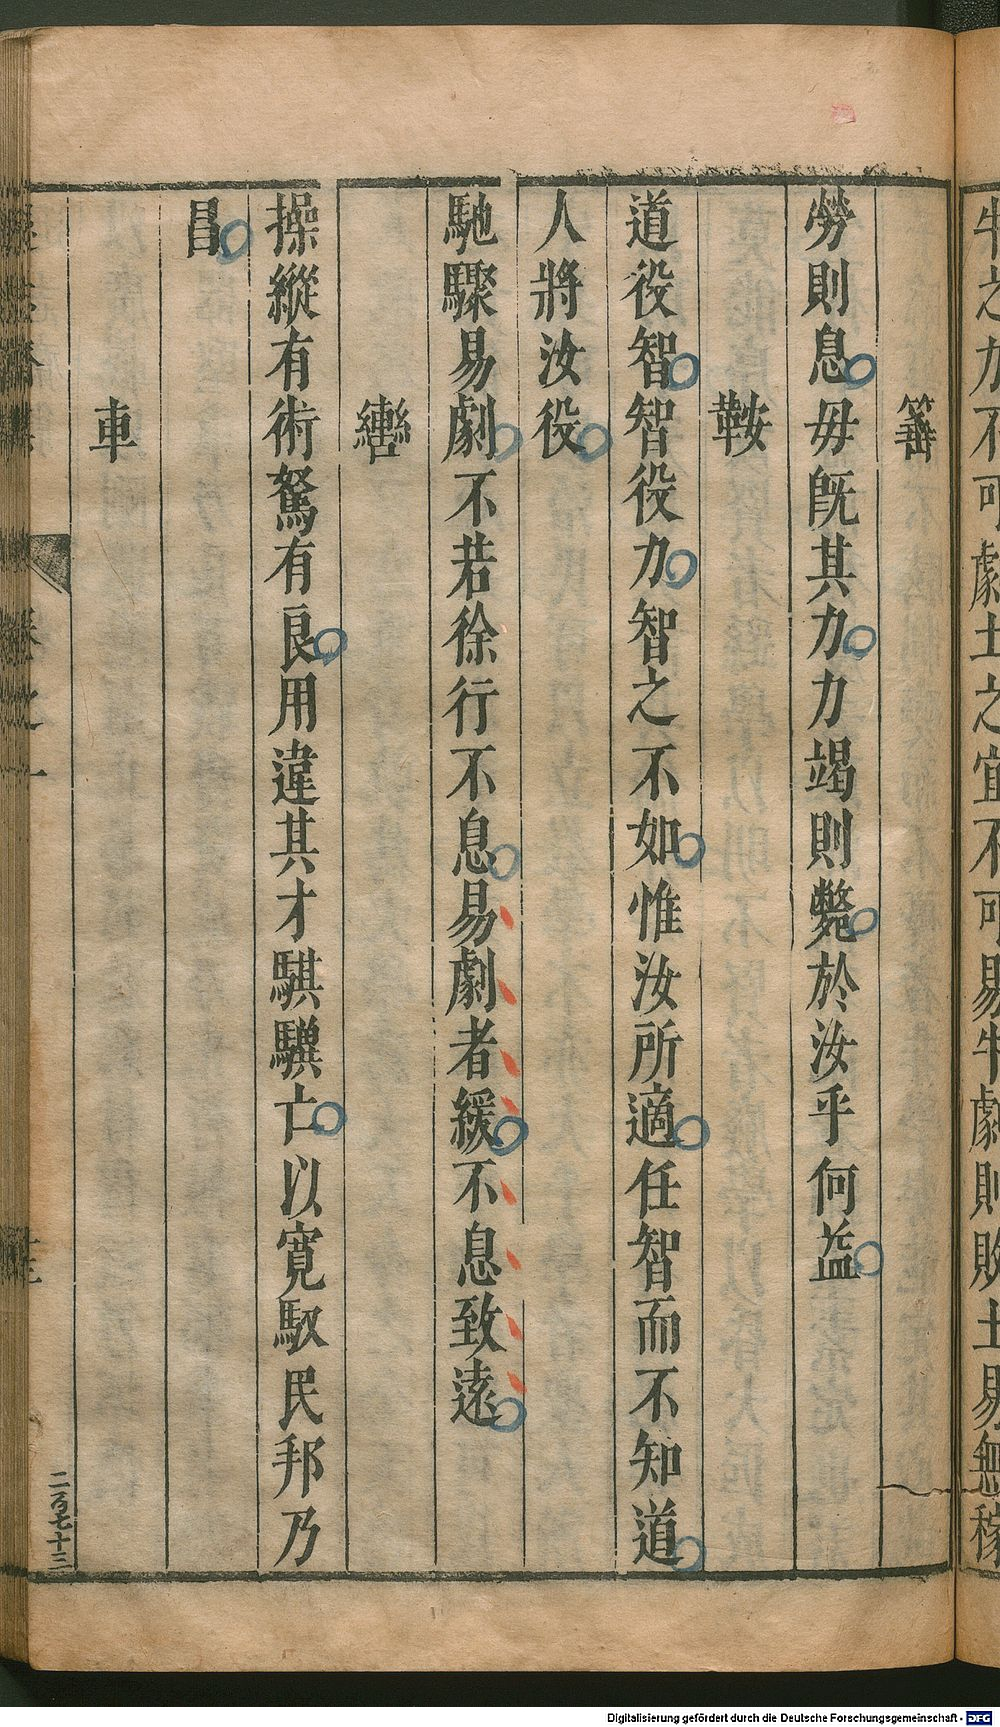 牛之力不可劇土之宜不可易牛劇則敗土易無稼
箠
勞則息毋旣其力力竭則斃於汝乎何益
鞍
道役智智役力智之不如惟汝所適任智而不知道
人將汝役
馳驟易劇不若徐行不息易劇者緩不息致遠
轡
操縱有術駑有良用違其才騏驥亡以寛馭民邦乃
昌
車
卷之一
二百七十三
Digitalisierung gefördert durch die Deutsche Forschungsgemeinschaft - DFG